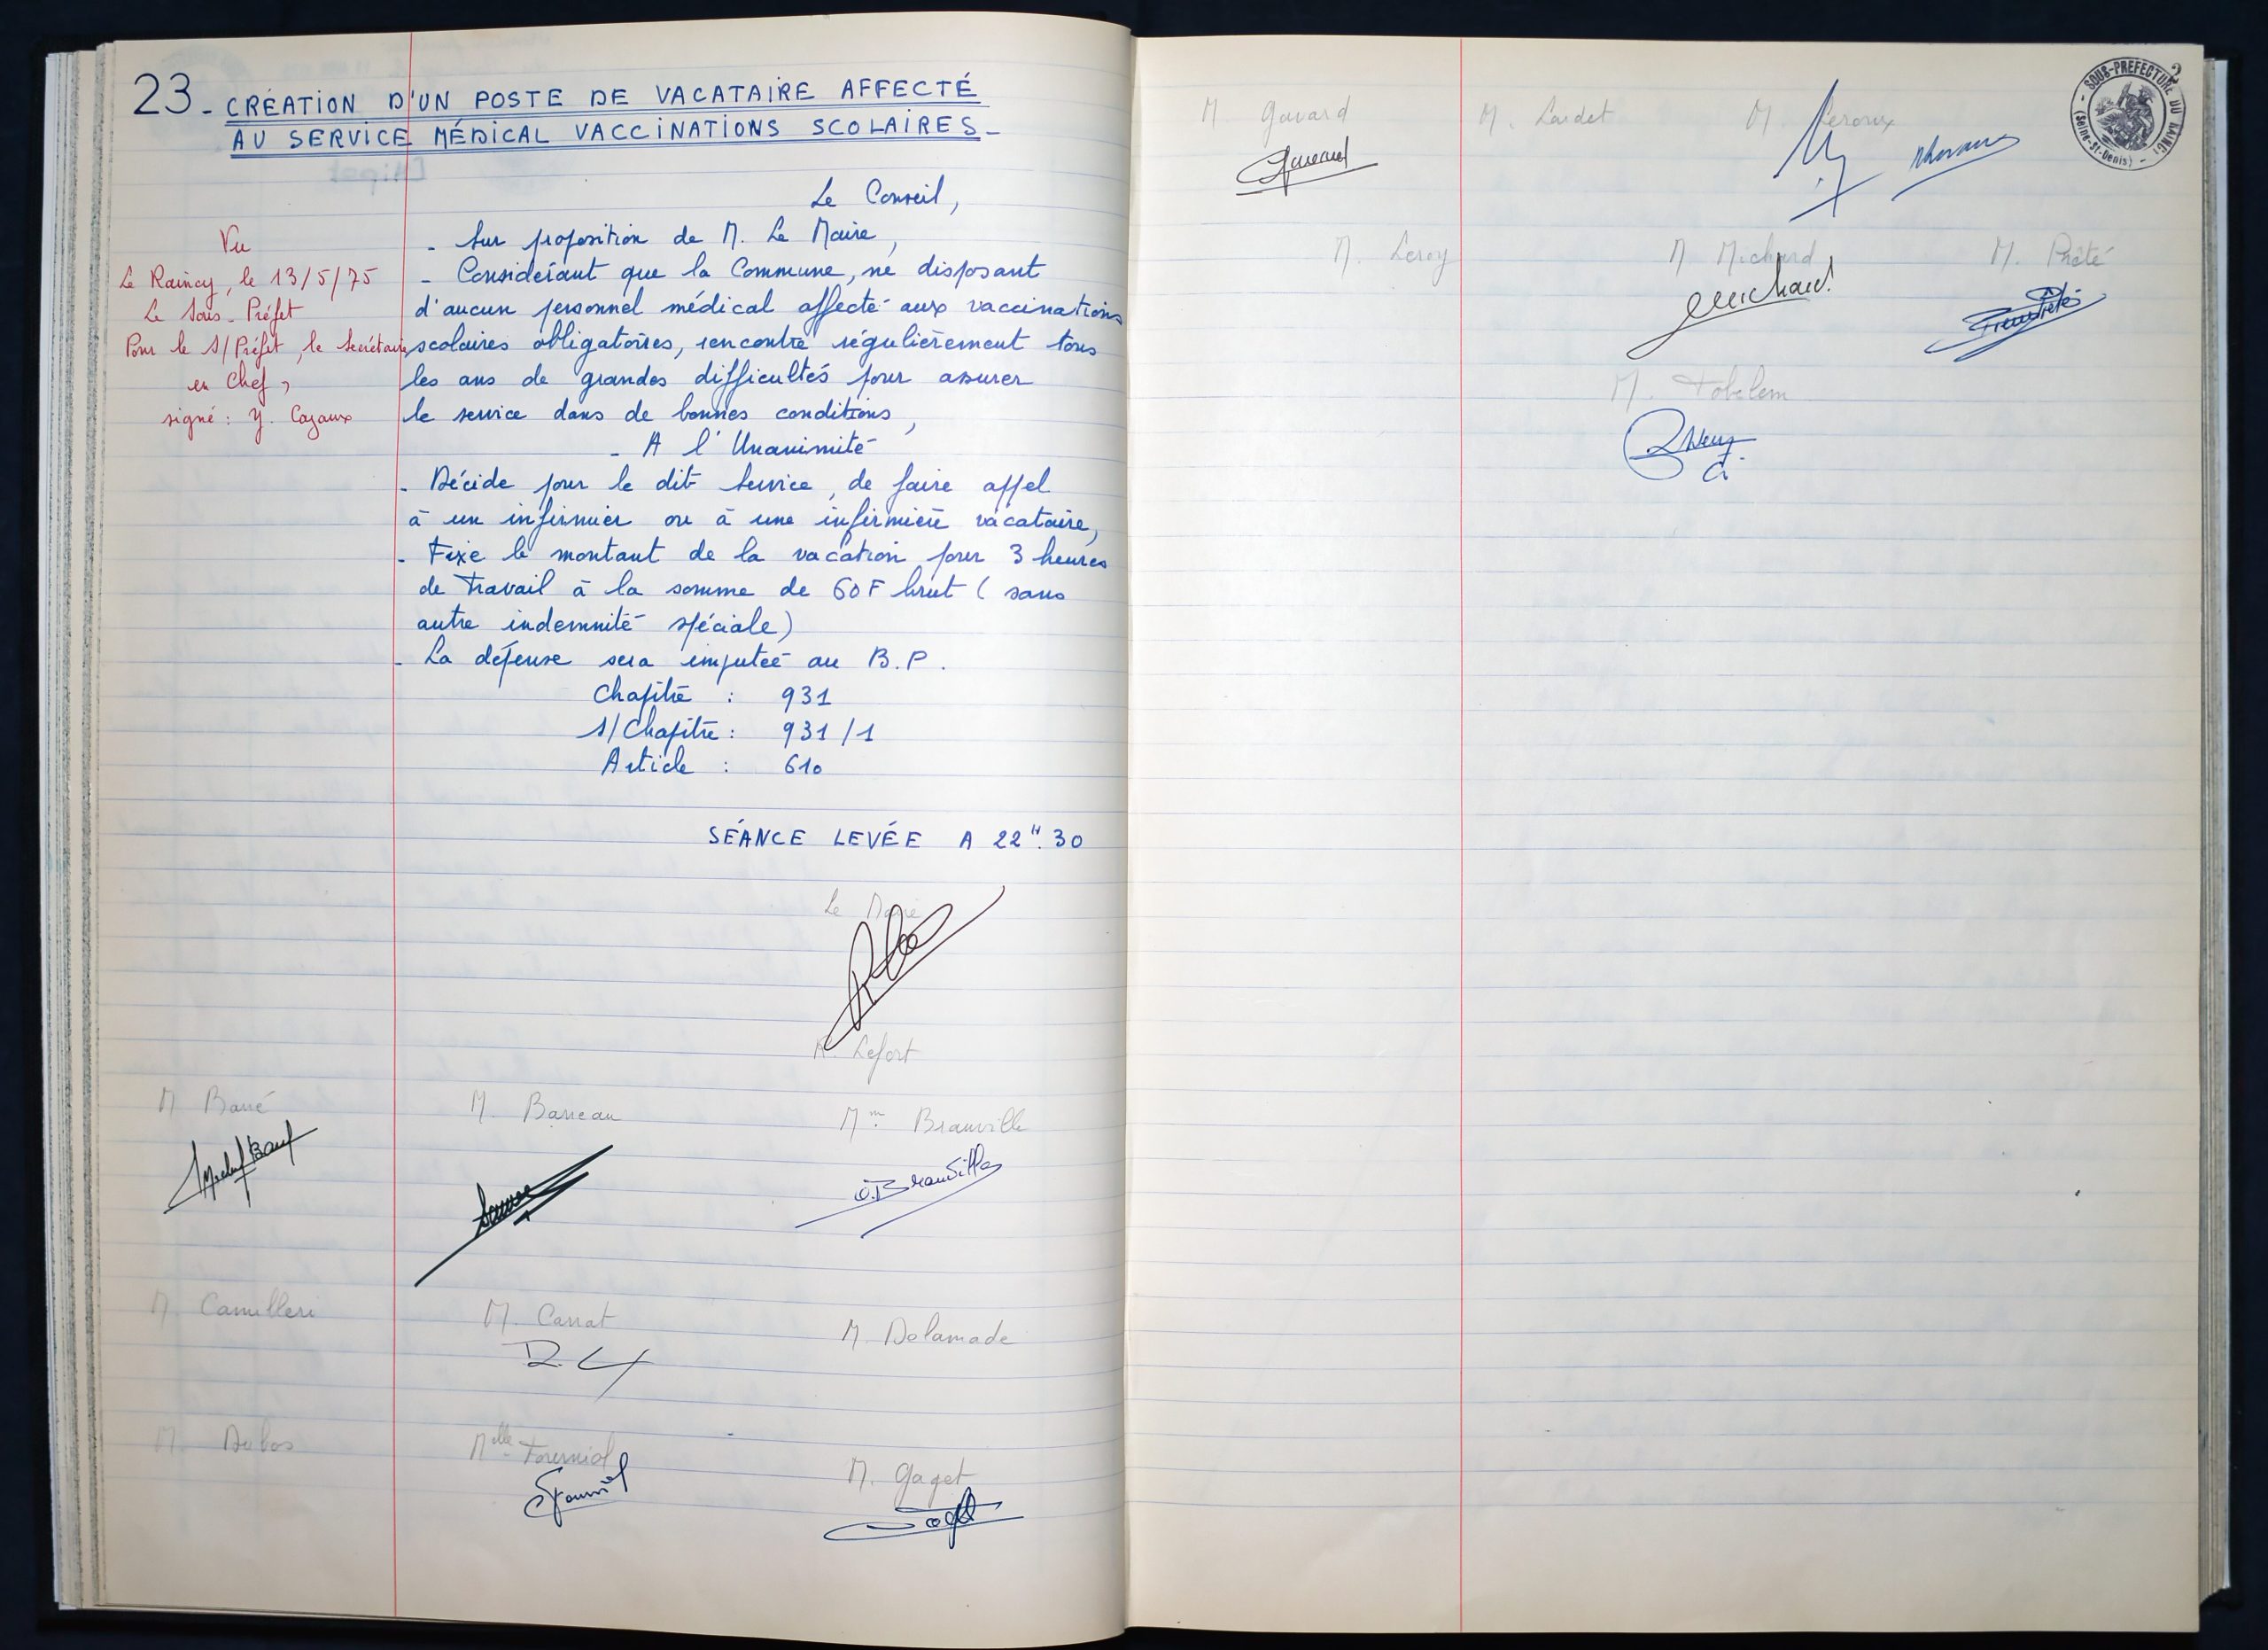 23_ CRÉATION D'UN POSTE DE VACATAIRE AFFECTÉ
AU SERVICE MÉDICAL VACCINATIONS SCOLAIRES_
Le Conseil,
- Sur proposition de M. Le Maire,
- Considérant que la Commune, ne disposant
d'aucun personnel médical affecté aux vaccinations
scolaires obligatoires, rencontre régulièrement tous
les ans de grandes difficultés pour assurer
le service dans de bonnes conditions,
- A l'Unanimité
- Décide pour le dit Service, de faire appel
à un infirmier ou à une infirmière vacataire,
- Fixe le montant de la vacation pour 3 heures
de Travail à la somme de 60F brut (sans
autre indemnité spéciale)
- La dépense sera imputée au B.P.
Chapitre : 931
S/Chapitre : 931/1
Article : 610
Vu
Le Raincy, le 13/5/75
Le Sous-Préfet
Pour le S/Préfet, le Secrétaire
en Chef,
signé : Y. Cazaux
SÉANCE LEVÉE A 22H.30
Le Maire
R. Lefort
M Barré
M. Barreau
Mme Branville
M. Camilleri
M. Carrat
M. Delamade
M. Dubos
Mlle Fourniol
M. Gaget
M Gavard
M. Lardet
M. Leroux
M. Leroy
M Michard
M. Prêté
M. Tobelem
SOUS-PREFECTURE DU RAINCY
(Seine-St-Denis)
2